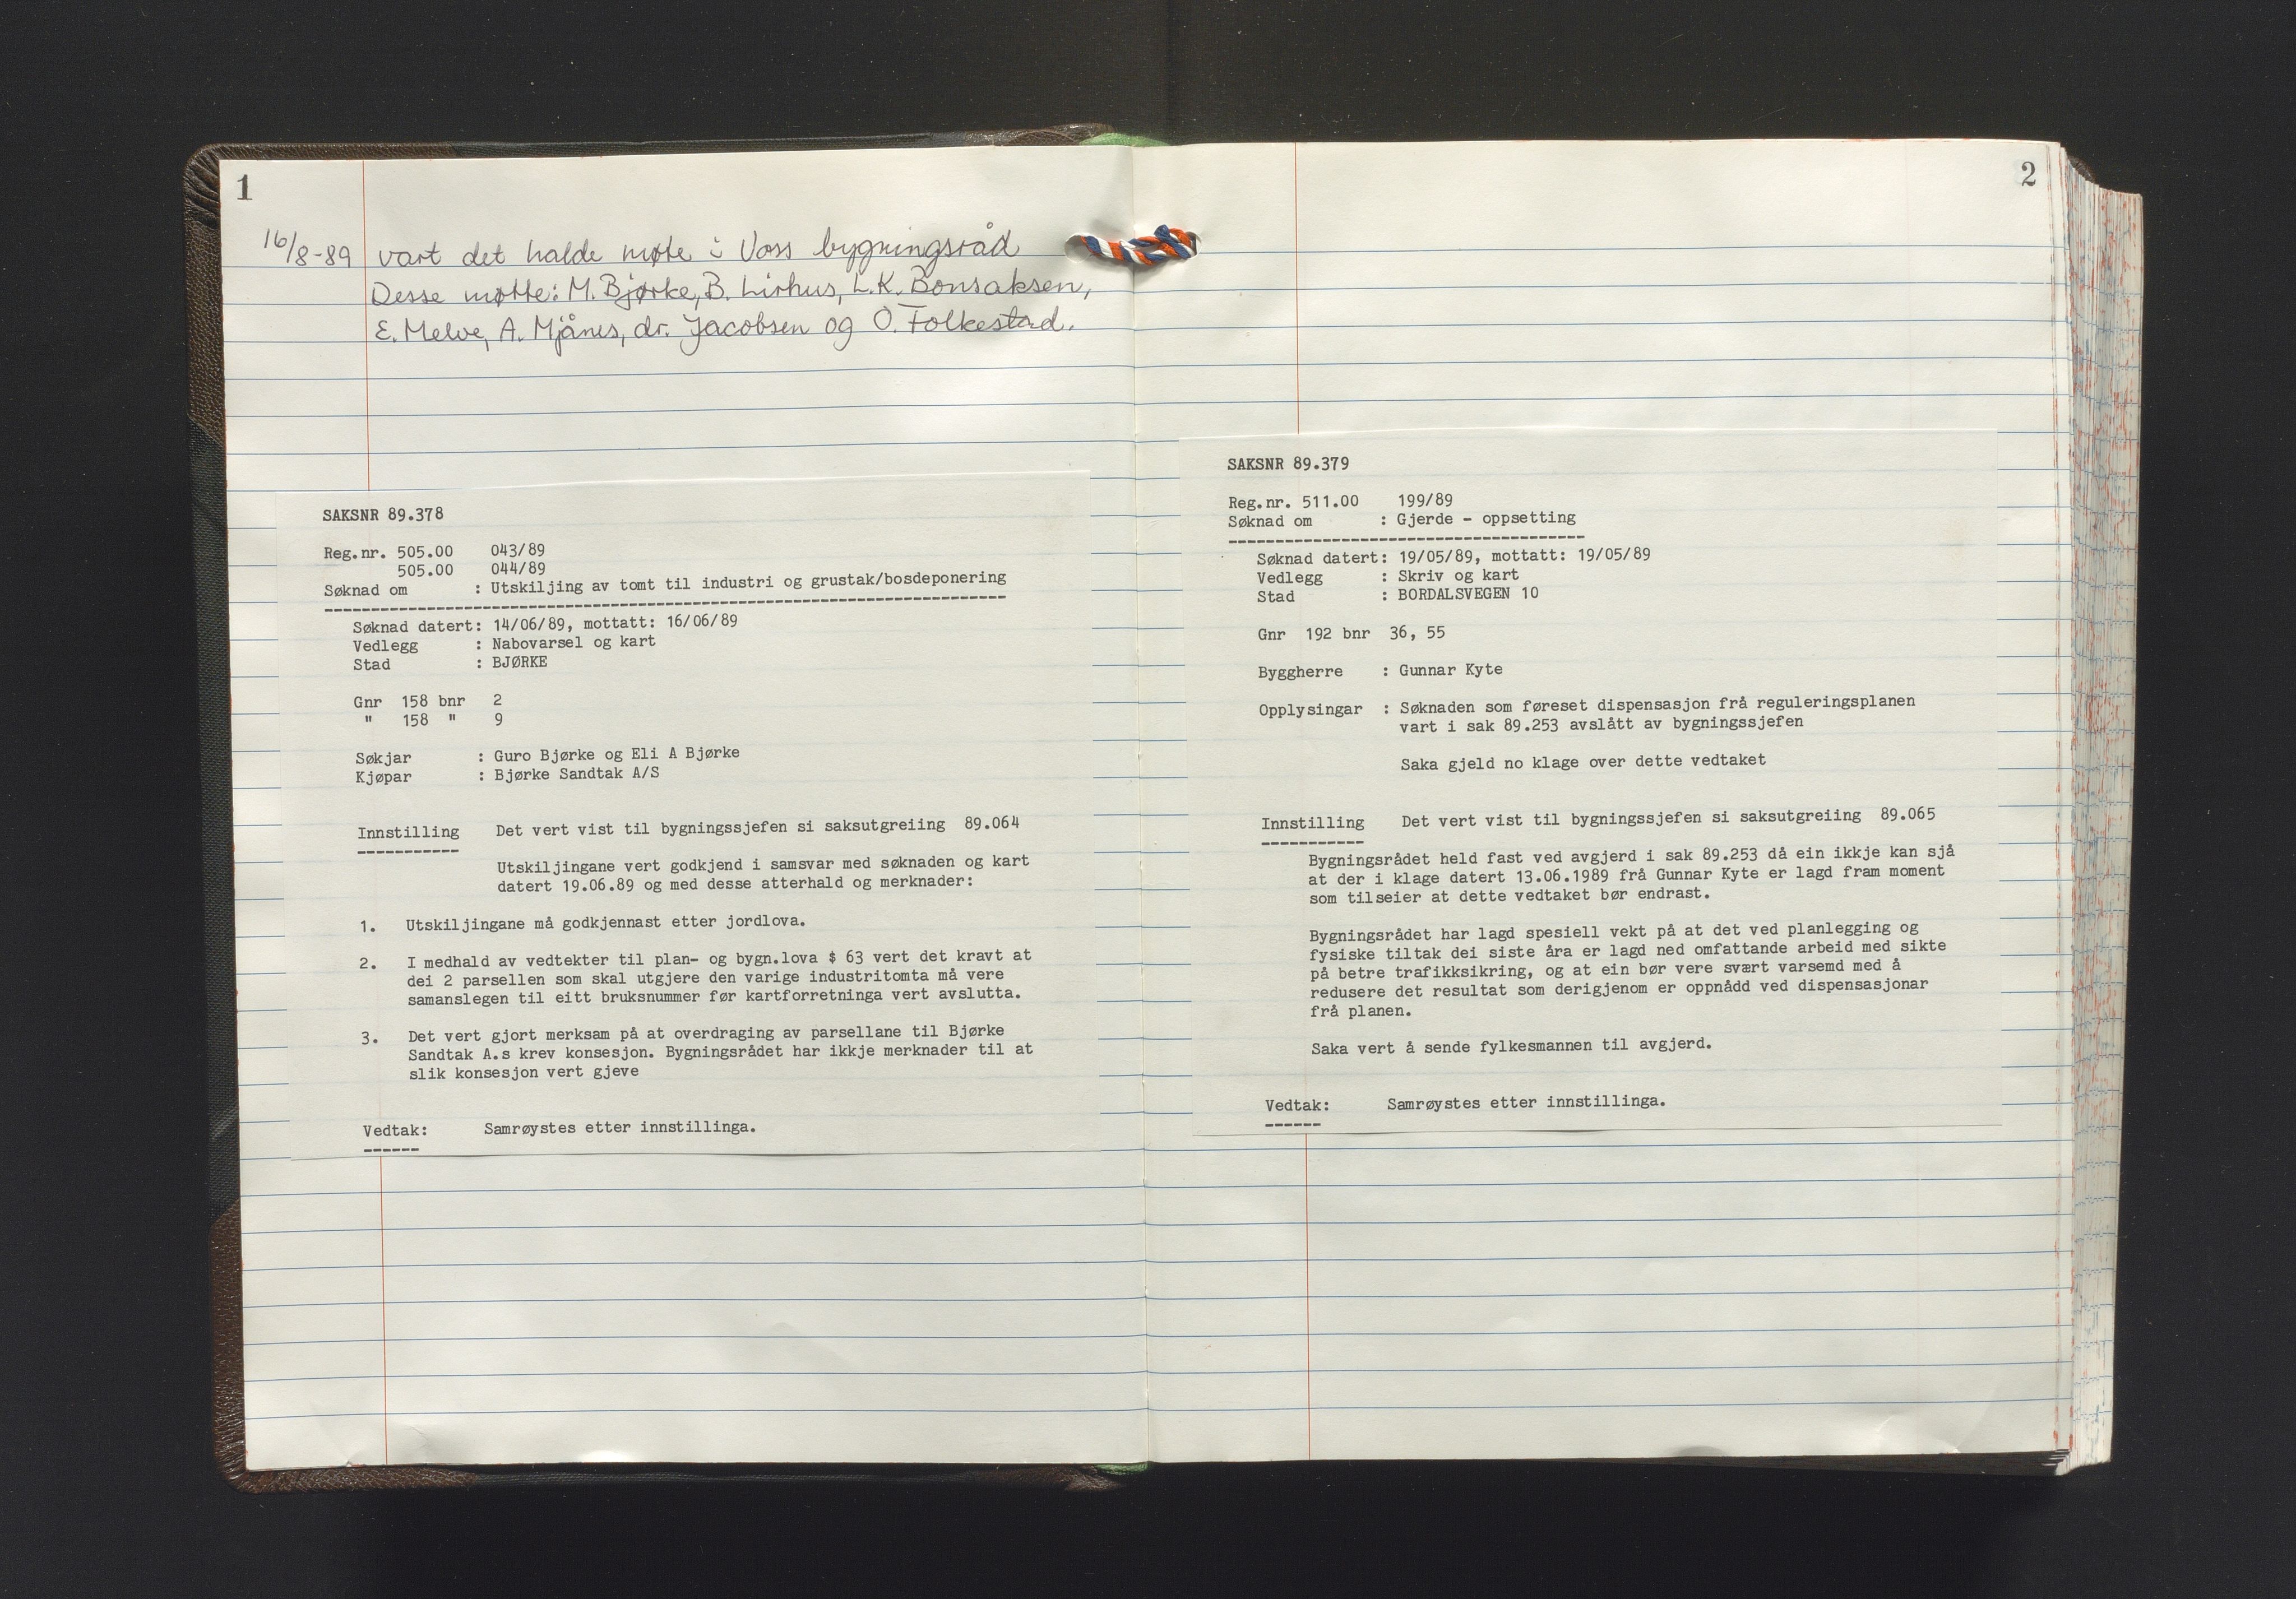 1
16/8-89 vart det halde møte i Voss bygningsråd
Desse møtte: M. Bjørke, B. Lirhus, L.K. Bonsaksen,
E. Melve, A. Mjånes, dr. Jacobsen og O. Folkestad.
SAKSNR 89.378
Reg.nr. 505.00 043/89
505.00 044/89
Søknad om : Utskiljing av tomt til industri og grustak/bosdeponering
Søknad datert: 14/06/89, mottatt: 16/06/89
Vedlegg : Nabovarsel og kart
Stad : BJØRKE
Gnr 158 bnr 2
" 158 " 9
Søkjar : Guro Bjørke og Eli A Bjørke
Kjøpar : Bjørke Sandtak A/S
Innstilling Det vert vist til bygningssjefen si saksutgreiing 89.064
Utskiljingane vert godkjend i samsvar med søknaden og kart
datert 19.06.89 og med desse atterhald og merknader:
1. Utskiljingane må godkjennast etter jordlova.
2. I medhald av vedtekter til plan- og bygn.lova $ 63 vert det kravt at
dei 2 parsellen som skal utgjere den varige industritomta må vere
samanslegen til eitt bruksnummer før kartforretninga vert avslutta.
3. Det vert gjort merksam på at overdraging av parsellane til Bjørke
Sandtak A.s krev konsesjon. Bygningsrådet har ikkje merknader til at
slik konsesjon vert gjeve
Vedtak: Samrøystes etter innstillinga.
2
SAKSNR 89.379
Reg.nr. 511.00 199/89
Søknad om : Gjerde - oppsetting
Søknad datert: 19/05/89, mottatt: 19/05/89
Vedlegg : Skriv og kart
Stad : BORDALSVEGEN 10
Gnr 192 bnr 36, 55
Byggherre : Gunnar Kyte
Opplysingar : Søknaden som føreset dispensasjon frå reguleringsplanen
vart i sak 89.253 avslått av bygningssjefen
Saka gjeld no klage over dette vedtaket
Innstilling Det vert vist til bygningssjefen si saksutgreiing 89.065
Bygningsrådet held fast ved avgjerd i sak 89.253 då ein ikkje kan sjå
at der i klage datert 13.06.1989 frå Gunnar Kyte er lagd fram moment
som tilseier at dette vedtaket bør endrast.
Bygningsrådet har lagd spesiell vekt på at det ved planlegging og
fysiske tiltak dei siste åra er lagd ned omfattande arbeid med sikte
på betre trafikksikring, og at ein bør vere svært varsemd med å
redusere det resultat som derigjenom er oppnådd ved dispensasjonar
frå planen.
Saka vert å sende fylkesmannen til avgjerd.
Vedtak: Samrøystes etter innstillinga.